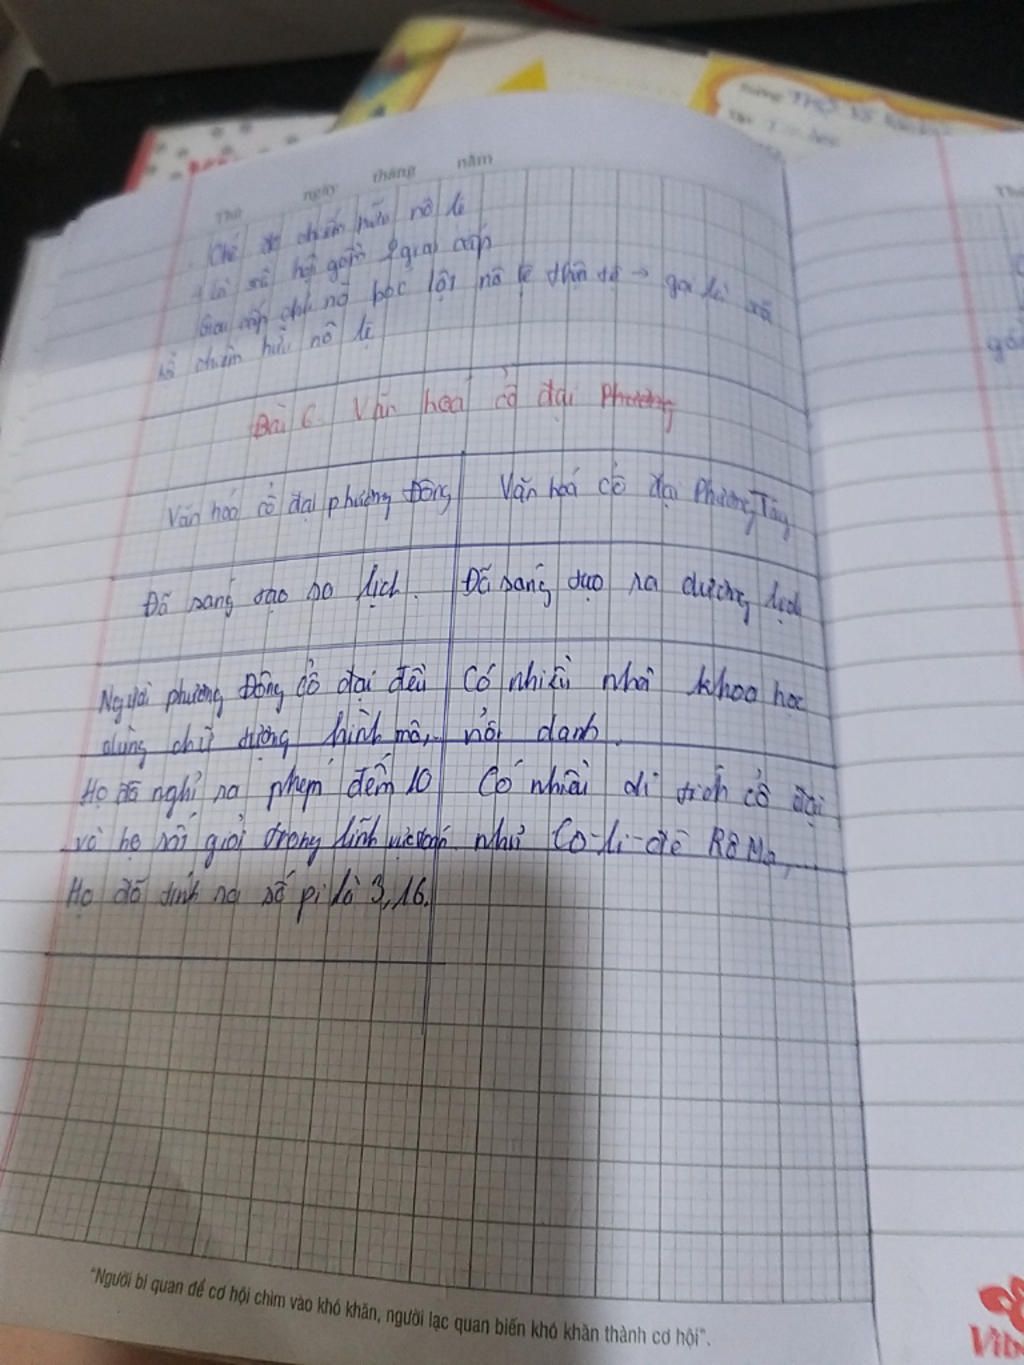 Thứ ngày tháng năm
Chế độ chiếm hữu nô lệ
+ Là xã hội gồm 2 giai cấp
Giai cấp chủ nô bóc lột nô lệ thậm tệ → gọi là xã
hô chiếm hữu nô lệ
Bài 6. Văn hoá cổ đại Phương
Văn hoá cổ đại phương Đông
Văn hoá cổ đại Phương Tây
Đã sáng tạo ra lịch.
Đã sáng tạo ra dương lịch
Người phương Đông cổ đại đều
dùng chữ tượng hình mô,
Có nhiều nhà khoa học
nổi danh.
Họ đã nghĩ ra phép đếm 10
và họ rất giỏi trong lĩnh vực toán
Họ đã tính ra số pi là 3,16.
Có nhiều di tích cổ đại
như Cô-li-dê Rô Ma,
"Người bi quan để cơ hội chìm vào khó khăn, người lạc quan biến khó khăn thành cơ hội".